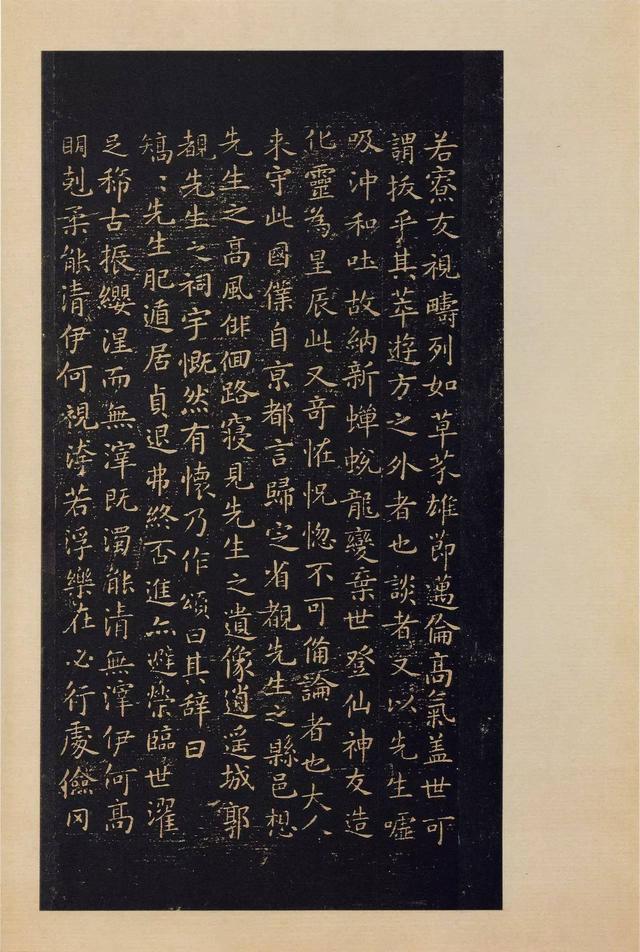 若寮友視疇列如草芥雄節邁倫高氣盖世可
謂拔乎其萃遊方之外者也談者又以先生噓
吸沖和吐故納新蟬蛻龍變棄世登仙神友造
化靈為星辰此又奇恠怳惚不可備論者也大人
来守此國僕自京都言歸定省覩先生之縣邑想
先生之高風俳佪路寢見先生之遺像逍遥城郭
覩先生之祠宇慨然有懷乃作頌曰其辞曰
矯〻先生肥遁居貞退弗終否進亦避榮臨世濯
足稀古振纓涅而無滓既濁能清無滓伊何高
明剋柔能清伊何視洿若浮樂在必行處儉罔